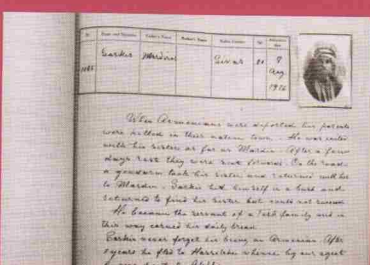 No Name and Surname Father's Name Mother's Name Native Country Age Admission date
1085 Sarkis Mardiros Sivas 21 8 Aug 1926
When Armenians were deported his parents
were killed in their native town. He was exiled
with his sisters as far as Mardin. After a few
days rest they were sent forward. On the road
a gendarm took his sister and returned with her
to Mardin. Sarkis hid himself in a bush and
returned to find his sister but could not succeed.
He became the servant of a Kurd family and in
this way earned his daily bread.
Sarkis never forgot his being an Armenian. After
years he fled to Harrilan whence by our agent